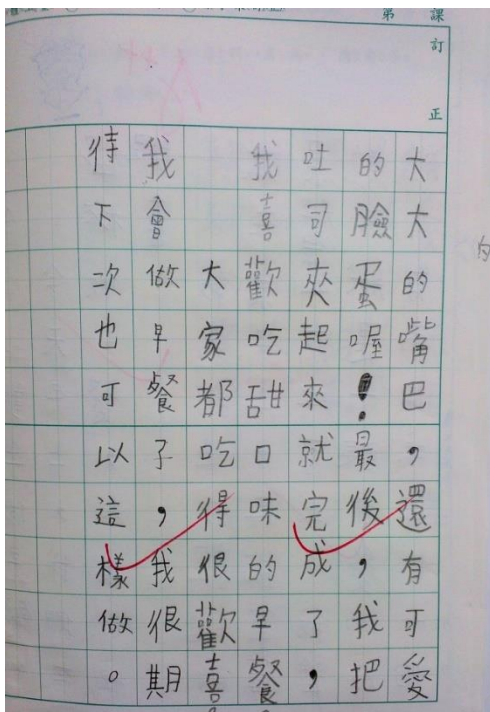 第 課
訂正
大大的嘴巴，還有可愛
的臉蛋喔！最後，我把
吐司夾起來就完成了，
我喜歡吃甜口味的早餐。
大家都吃得很歡喜。
我會做早餐了，我很期
待下次也可以這樣做。